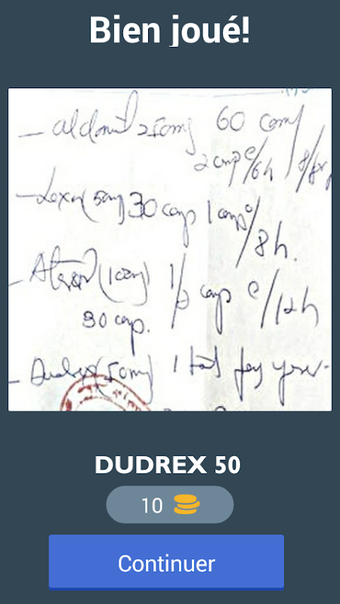 Bien joué!
- aldomil 250mg 60 comp
2 cmp e/6h / 8/8h
- Loxen (50mg) 30 comp 1 comp e/
8h.
- (100mg) 1/2 comp e/12h
30 comp.
- Dudrex (50mg) 1 tab
DUDREX 50
10
Continuer